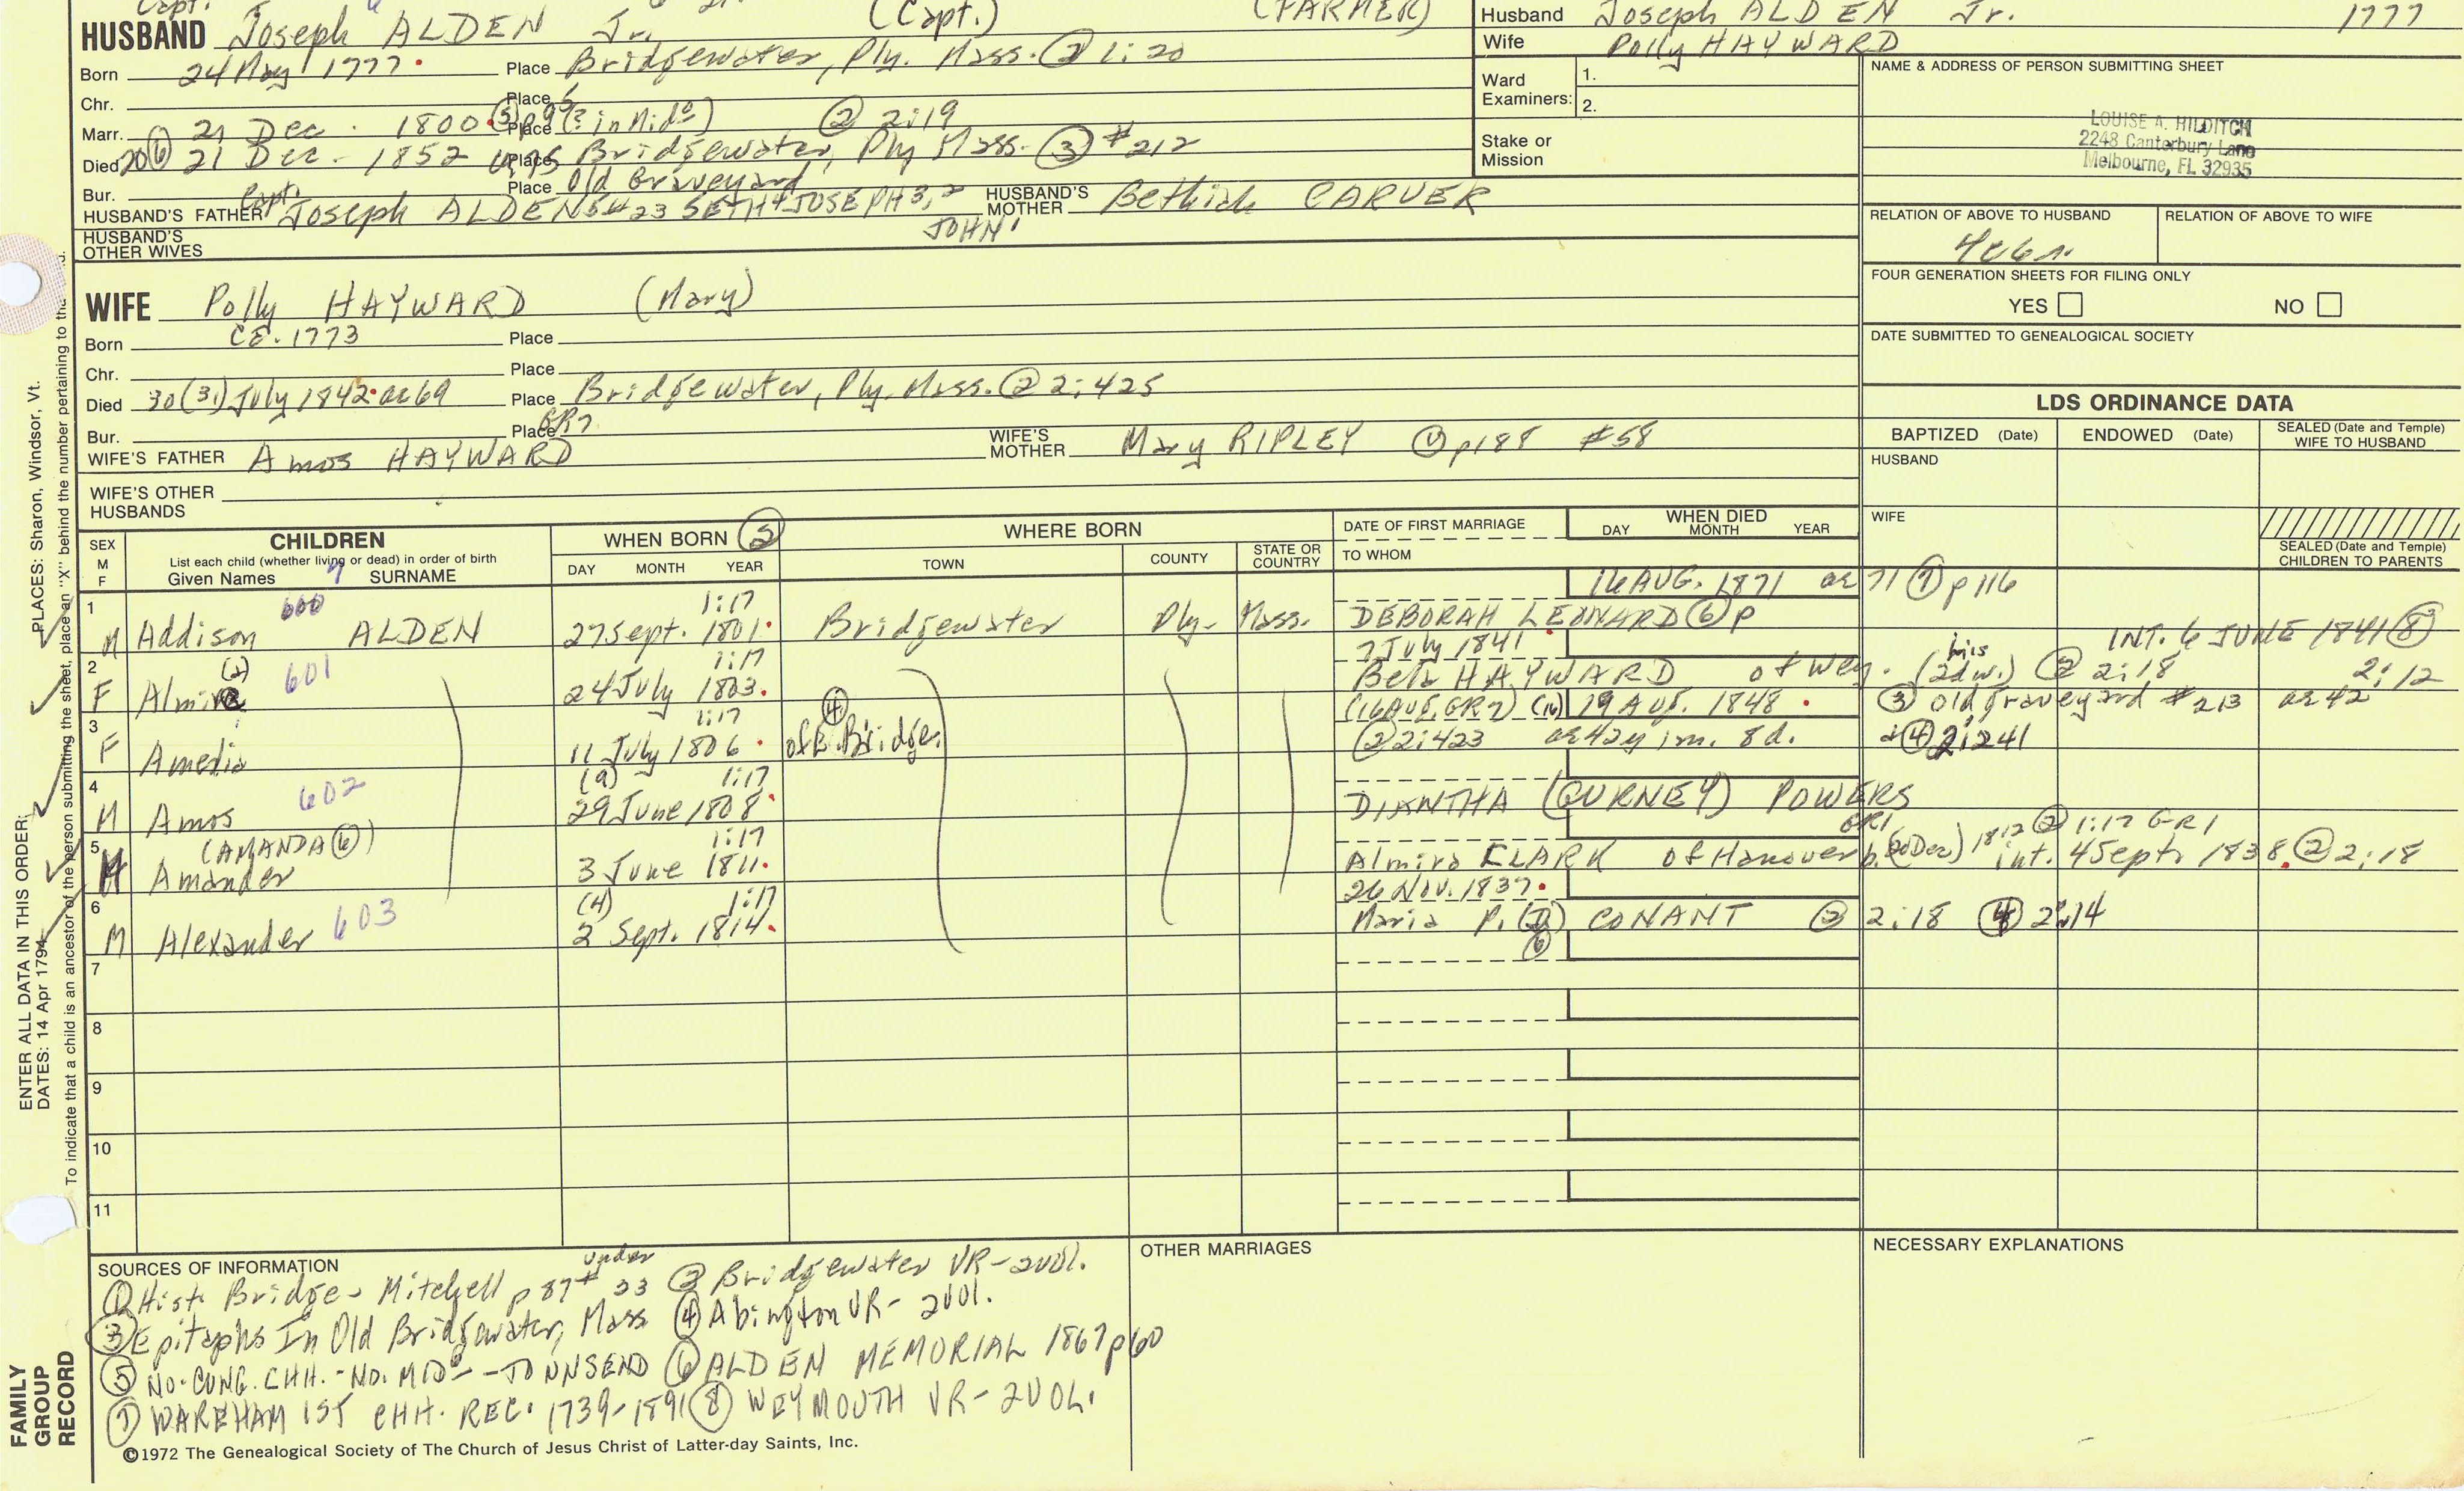 Capt.
HUSBAND Joseph ALDEN Jr. (Capt.) (FARMER)
Born 24 May 1777 Place Bridgewater, Ply. Mass. ② 1:20
Chr. Place
Marr. 21 Dec. 1800 ⑤ p 95 Place (? in Mido) ② 2:19
Died 20⑥ 21 Dec. 1852 ae 75 Place Bridgewater, Ply Mass. ③ #212
Bur. Place Old Graveyard
HUSBAND'S FATHER Capt. Joseph ALDEN 5 #23 SETH 4 JOSEPH 3, 2 JOHN 1
HUSBAND'S MOTHER Bethiah CARVER
HUSBAND'S OTHER WIVES
WIFE Polly HAYWARD (Mary)
Born CE. 1773 Place
Chr. Place
Died 30 (31) July 1842 ae 69 Place Bridgewater, Ply. Mass. ② 2:425
Bur. Place GR7
WIFE'S FATHER Amos HAYWARD
WIFE'S MOTHER Mary RIPLEY ① p188 #58
WIFE'S OTHER HUSBANDS
Husband Joseph ALDEN Jr. 1777
Wife Polly HAYWARD
Ward Examiners: 1.
2.
Stake or Mission
NAME & ADDRESS OF PERSON SUBMITTING SHEET
LOUISE A. HILDITCH
2248 Canterbury Lane
Melbourne, FL 32935
RELATION OF ABOVE TO HUSBAND
RELATION OF ABOVE TO WIFE
FOUR GENERATION SHEETS FOR FILING ONLY
YES NO
DATE SUBMITTED TO GENEALOGICAL SOCIETY
LDS ORDINANCE DATA
BAPTIZED (Date) ENDOWED (Date) SEALED (Date and Temple) WIFE TO HUSBAND
HUSBAND
WIFE
SEALED (Date and Temple) CHILDREN TO PARENTS
SEX M F
CHILDREN
List each child (whether living or dead) in order of birth
Given Names 7 SURNAME
WHEN BORN ②
DAY MONTH YEAR
WHERE BORN
TOWN COUNTY STATE OR COUNTRY
DATE OF FIRST MARRIAGE
TO WHOM
WHEN DIED
DAY MONTH YEAR
16 AUG. 1871 ae 71 ⑦ p 116
1 M Addison 600 ALDEN 1:17 27 Sept. 1801 Bridgewater Ply. Mass. DEBORAH LEONARD ⑥ p
7 July 1841 INT. 6 JUNE 1841 ⑧
2 F Almira (2) 601 1:17 24 July 1803. Beth HAYWARD of Wey. (his 2d w.) ② 2:18 2:12
(16 AUG, GR7) (16) 19 Aug. 1848 ③ Old graveyard #213 ae 42
3 F Amedia 1:17 11 July 1806 ④ of E. Bridge. ② 2:423 ae 42y 1m. 8d. ④ 2:241
4 M Amos 602 (9) 1:17 29 June 1808 DIANTHA (GURNEY) POWERS
5 M (AMANDA ⑥) Amander 1:17 3 June 1811. Almira CLARK of Hanover b. (20 Dec) GR1 1812 ② 1:17 GR1 int. 4 Sept. 1838. ② 2:18
26 Nov. 1837.
6 M Alexander 603 (4) 1:17 2 Sept. 1814. Maria P. (D) ⑥ CONANT ② 2:18 ④ 2:14
7
8
9
10
11
SOURCES OF INFORMATION
① Hist. Bridge - Mitchell p 87 under #23 ② Bridgewater VR - 2 vol.
③ Epitaphs In Old Bridgewater, Mass ④ Abington VR - 2 vol.
⑤ NO. CONG. CHH. - NO. MIDo - TOWNSEND ⑥ ALDEN MEMORIAL 1867 p 60
⑦ WAREHAM 1ST CHH. REC. 1739-1891 ⑧ WEYMOUTH VR - 2 VOL.
OTHER MARRIAGES
NECESSARY EXPLANATIONS
©1972 The Genealogical Society of The Church of Jesus Christ of Latter-day Saints, Inc.
FAMILY GROUP RECORD
ENTER ALL DATA IN THIS ORDER:
DATES: 14 Apr 1794
PLACES: Sharon, Windsor, Vt.
To indicate that a child is an ancestor of the person submitting the sheet, place an "X" behind the number pertaining to